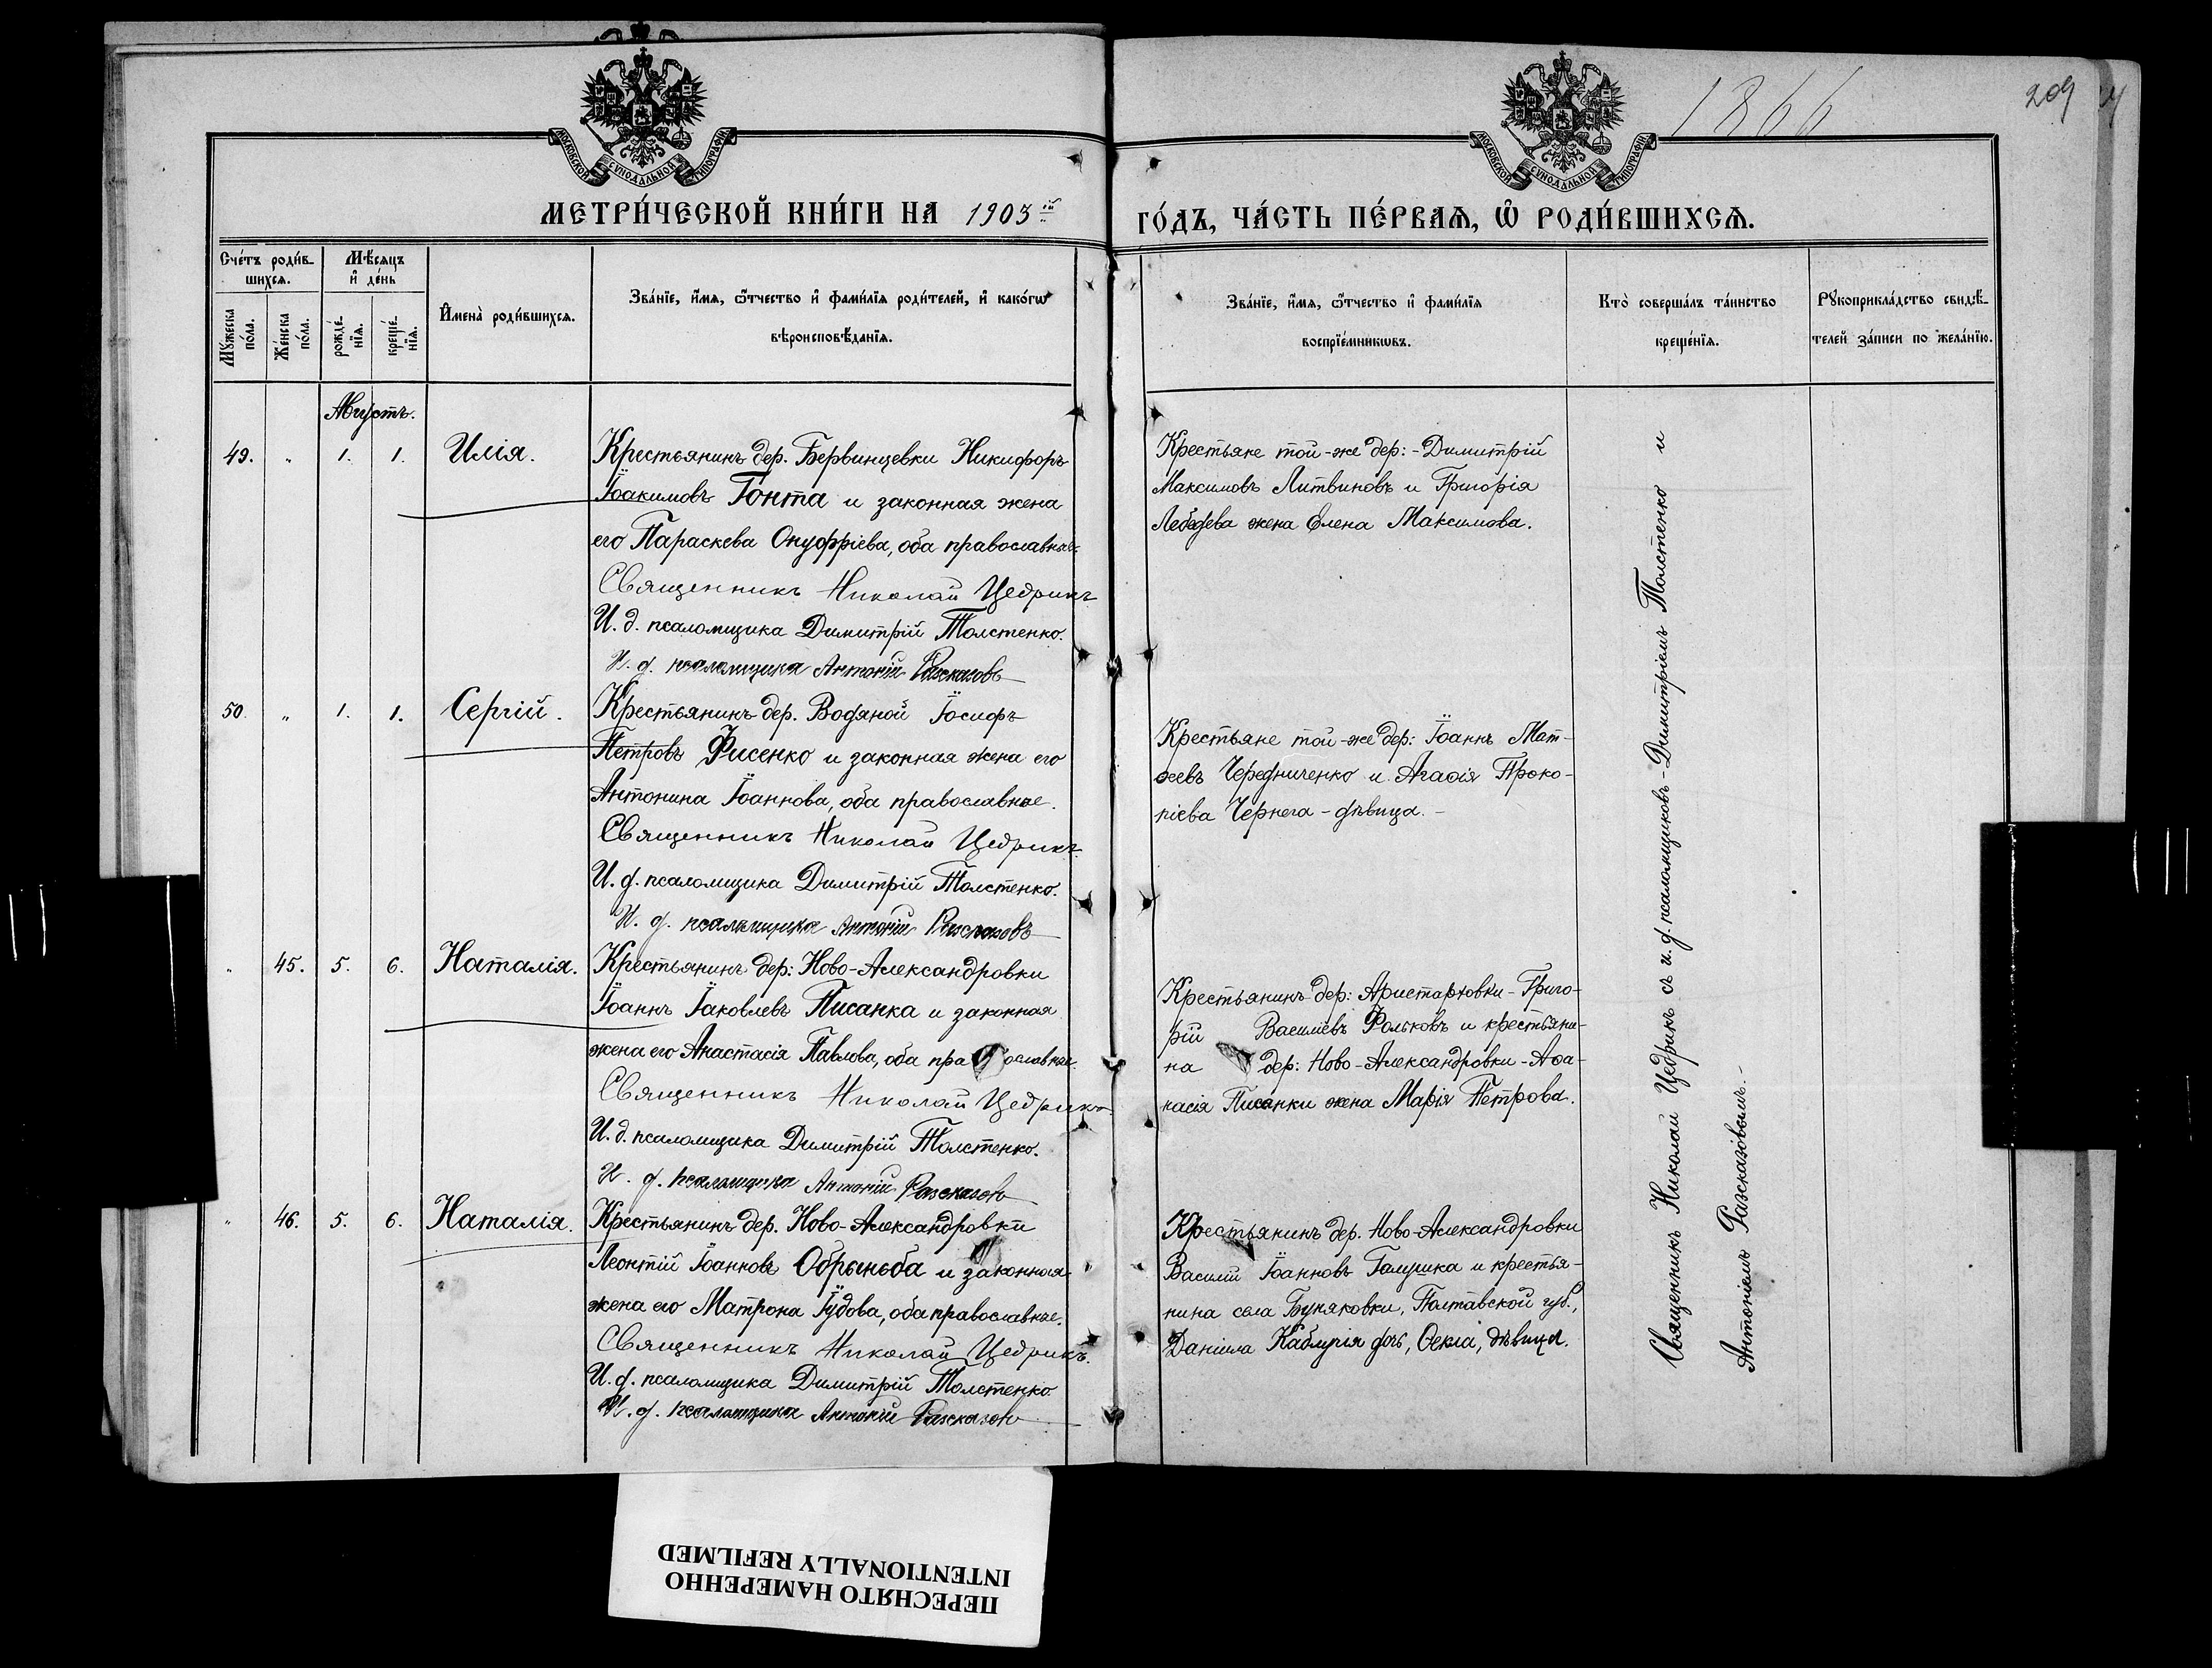 1866
209
МОСКОВСКОЙ СѴНОДАЛЬНОЙ ТИПОГРАФІИ
МОСКОВСКОЙ СѴНОДАЛЬНОЙ ТИПОГРАФІИ
МЕТРИ́ЧЕСКОЙ КНИ́ГИ НА 1903ій
ГО́ДЪ, ЧА́СТЬ ПЕ́РВАѦ, Ѡ҆ РОДИ́ВШИХСѦ.
Сче́тъ роди́в-
шихсѧ.
Мѹ́жеска
по́ла.
Же́нска
по́ла.
Мѣ́сѧцъ
и҆ де́нь
рожде́-
нїѧ.
креще́-
нїѧ.
И҆мена̀ роди́вшихсѧ.
Зва́нїе, и҆́мѧ, ѻ҆́тчество и҆ фами́лїѧ роди́телей, и҆ како́гѡ
вѣроисповѣ́данїѧ.
Зва́нїе, и҆́мѧ, ѻ҆́тчество и҆ фами́лїѧ
воспрїе́мникѡвъ.
Кто̀ соверша́лъ та́инство
креще́нїѧ.
Рѹкоприкла́дство свидѣ́-
телей за́писи по жела́нїю.
Августъ.
49. " 1. 1. Илія.
Крестьянинъ дер. Бервинцевки Никифоръ
Іоакимовъ Гонта и законная жена
его Параскева Онуфріева, оба православные
Священникъ Николай Цедрикъ
И. д. псаломщика Димитрій Толстенко.
И. д. псаломщика Антоній Разсказовъ
Крестьяне той-же дер:-Димитрій
Максимовъ Литвиновъ и Григорія
Лебедева жена Елена Максимова.
50. " 1. 1. Сергій.
Крестьянинъ дер. Водяной Іосифъ
Петровъ Фисенко и законная жена его
Антонина Іоаннова, оба православные.
Священникъ Николай Цедрикъ
И. д. псаломщика Димитрій Толстенко.
И. д. псаломщика Антоній Разсказовъ
Крестьяне той-же дер: Іоаннъ Мат-
ѳеевъ Чередниченко и Агаѳія Проко-
піева Чернега - дѣвица. -
" 45. 5. 6. Наталія.
Крестьянинъ дер: Ново-Александровки
Іоаннъ Іаковлевъ Писанка и законная
жена его Анастасія Павлова, оба православные.
Священникъ Николай Цедрикъ
И. д. псаломщика Димитрій Толстенко.
И. д. псаломщика Антоній Разсказовъ
Крестьянинъ дер: Аристарховки - Григо-
рій Василіевъ Фольковъ и крестьяни-
на дер: Ново-Александровки - Аѳа-
насія Писанки жена Марія Петрова.
" 46. 5. 6. Наталія.
Крестьянинъ дер. Ново-Александровки
Леонтій Іоанновъ Обрыньба и законная
жена его Матрона Іудова, оба православные.
Священникъ Николай Цедрикъ.
И. д. псаломщика Димитрій Толстенко
И. д. псаломщика Антоній Разсказовъ
Крестьянинъ дер. Ново-Александровки
Василій Іоанновъ Галушка и крестья-
нина села Буняковки, Полтавской губ.,
Даніила Каблучія дочь, Ѳекла, дѣвица.
Священникъ Николай Цедрикъ съ и. д. псаломщиковъ - Димитріемъ Толстенко и
Антоніемъ Разсказовымъ. -
ПЕРЕСНЯТО НАМЕРЕННО
INTENTIONALLY REFILMED